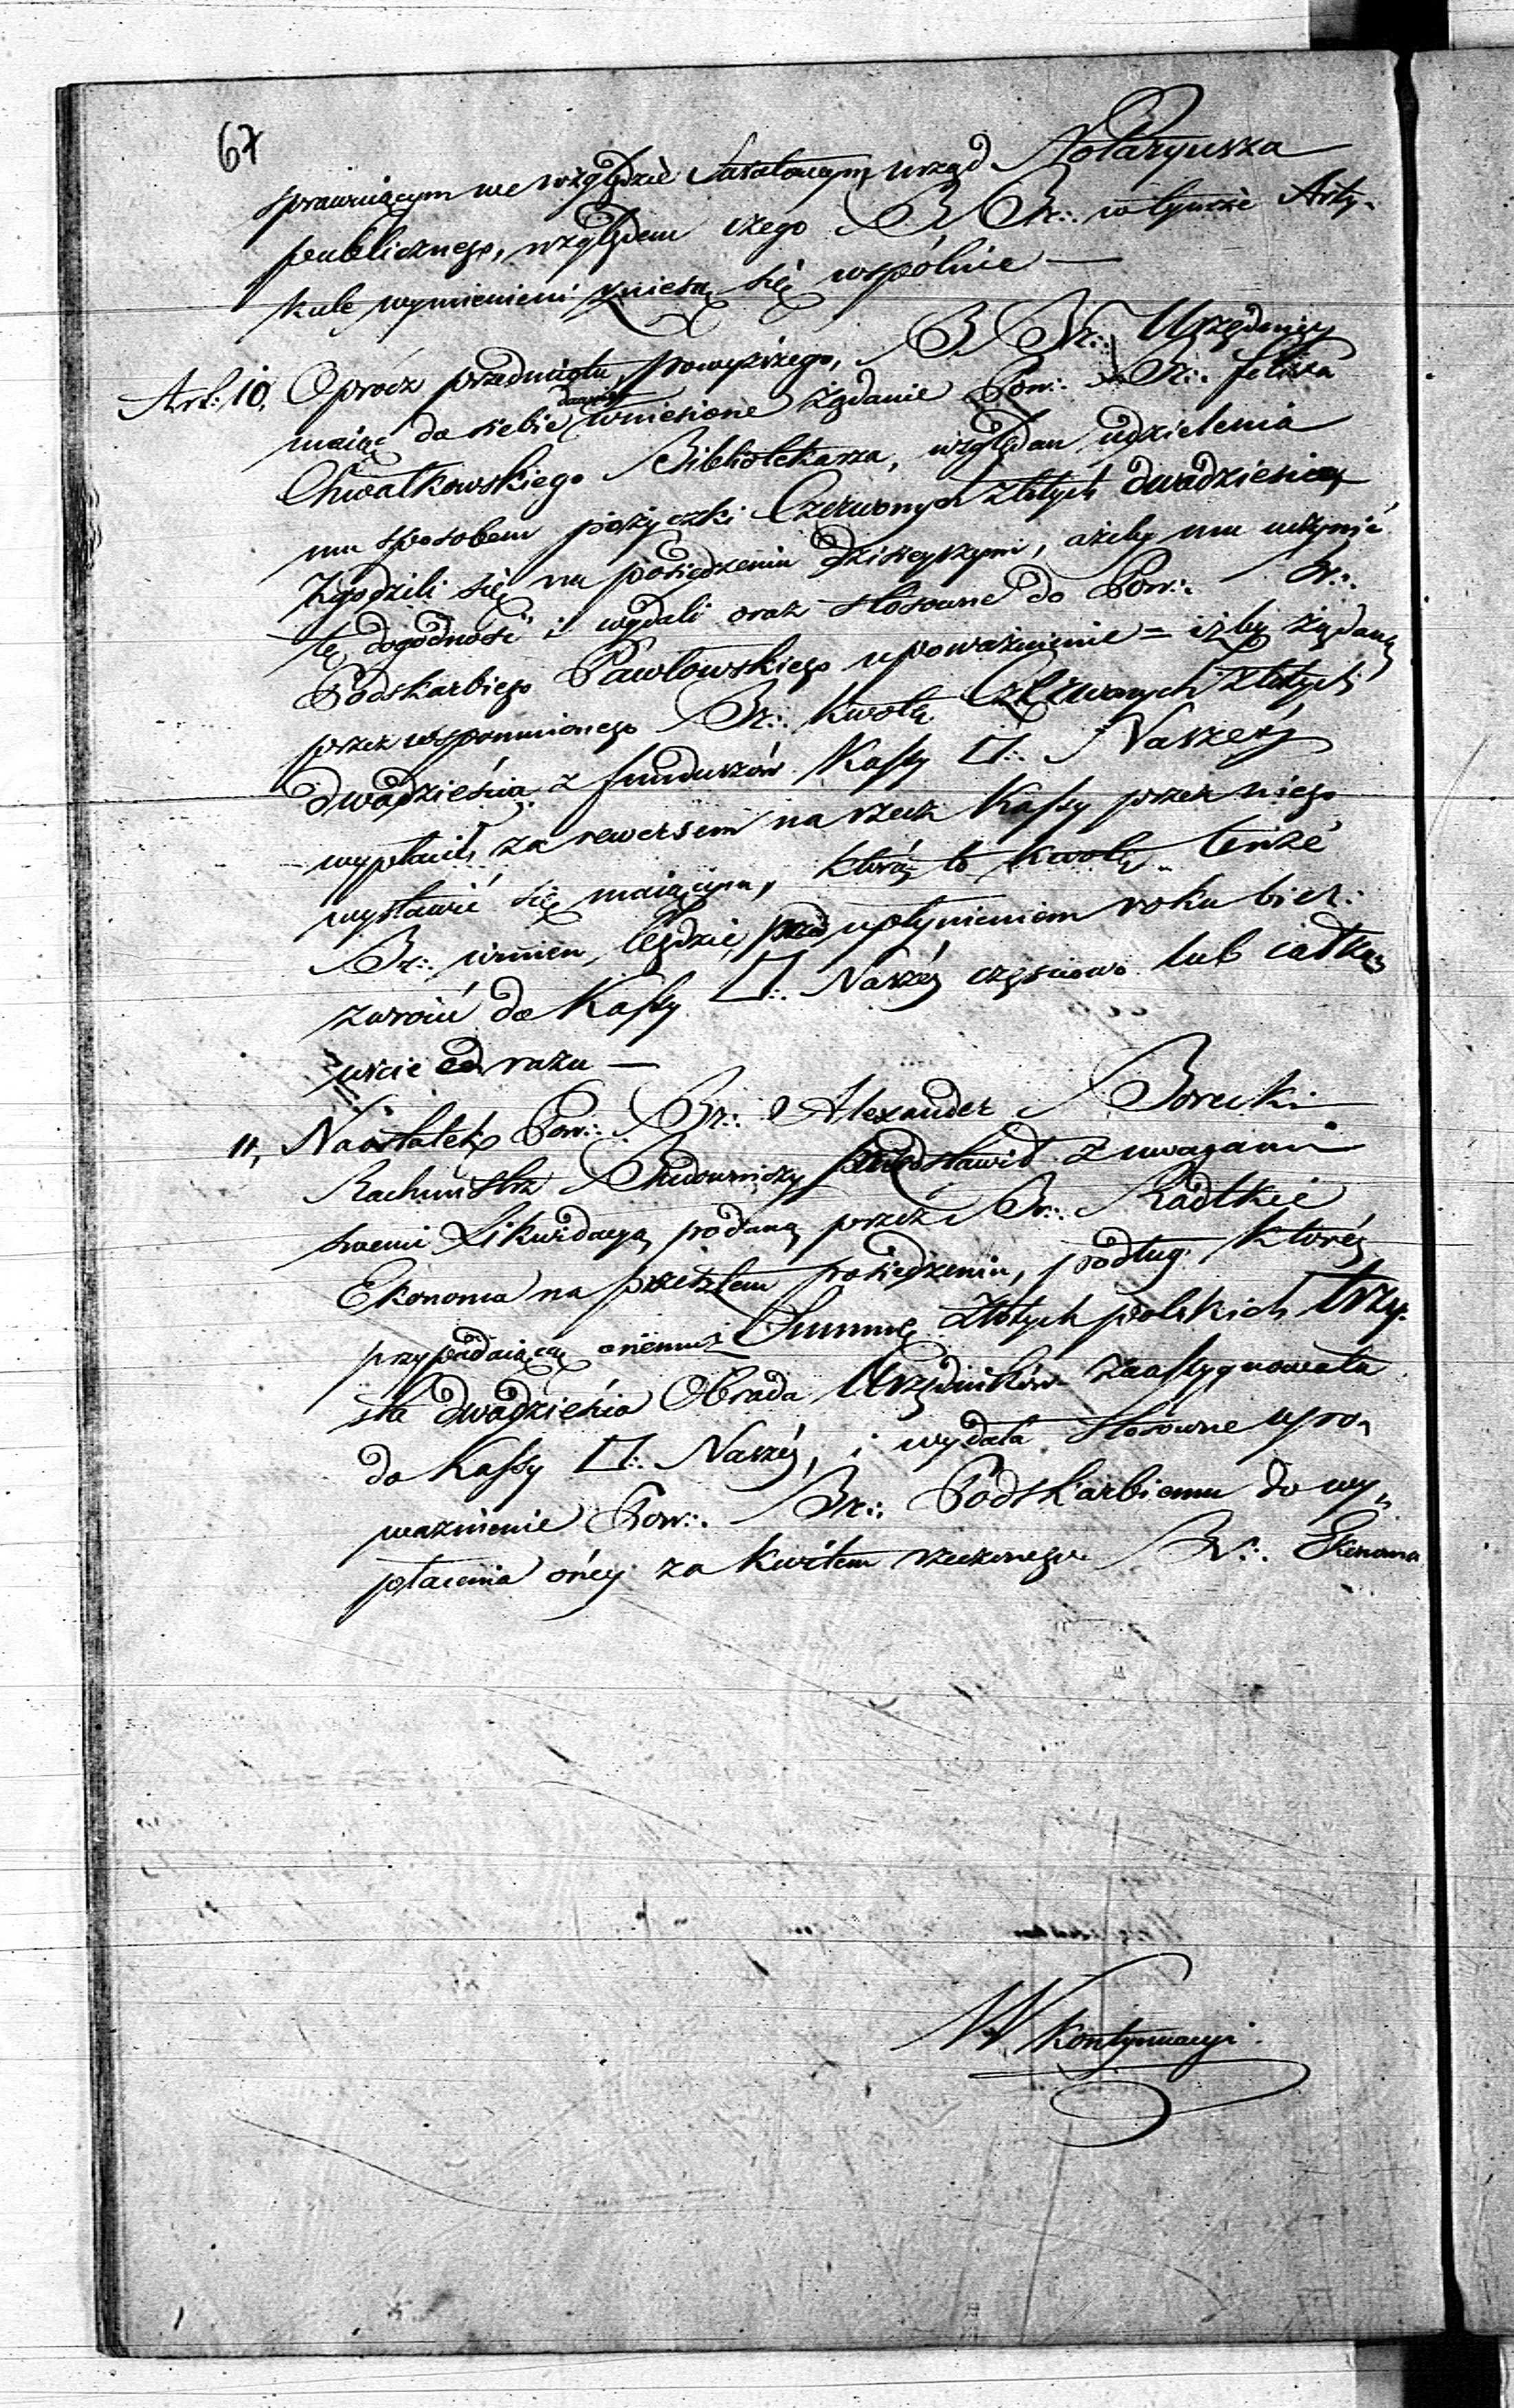 67
sprawuiącym we względzie Światowym urząd Notaryusza
publicznego, względem czego B. Br∴ w tymże Arty„
kule wymienieni zniesą się wspólnie —
Art: 10, Oprócz przedmiotu powyższego, B Br∴ Urzędnicy
maiąc do siebie dawniéj wniesione żądanie Pow∴ Br∴ felixa
Chwalkowskiego Bibliotekarza, względem udzielenia
mu sposobem pożyczki Czerwonych Złotych dwadzieścia
Zgodzili się na posiedzeniu dzisieyszym, ażeby mu uczynić
tę dogodność i wydali oraz stosowne do Pow∴ Br∴
Podskarbiego Pawłowskiego upoważnienie = iżby żądaną
przez wspomnionego Br∴ kwotę Czerwonych Złotych
dwadzieścia z funduszów Kassy □∴ Naszéy
wypłacił, za rewersem na rzecz Kassy przez niego
wystawić się maiącym, którą to kwotę tenże
Br∴ winien będzie przed upłynieniem roku bież:
zwrócić do Kassy □∴ Naszéy częściowo lub całko„
wicie od razu —
11, Naostatek Pow∴ Br∴ Alexander Borecki
Rachmistrz Budowniczy przedstawił z uwagami
swemi Likwidacyą podaną przez Br∴ Radtkie
Ekonoma na przeszłem posiedzeniu, podług któréy
przypadaiącą onemuż Summę Złotych polskich trzy„
sta dwadzieścia Obrada Urzędników zaassygnowała
do Kassy □∴ Naszéy, i wydała stosowne upo„
ważnienie Pow∴ Br∴ Podskarbiemu do wy„
płacenia onéy za kwitem rzeczonego Br∴ Ekonoma
W kontynuacyi